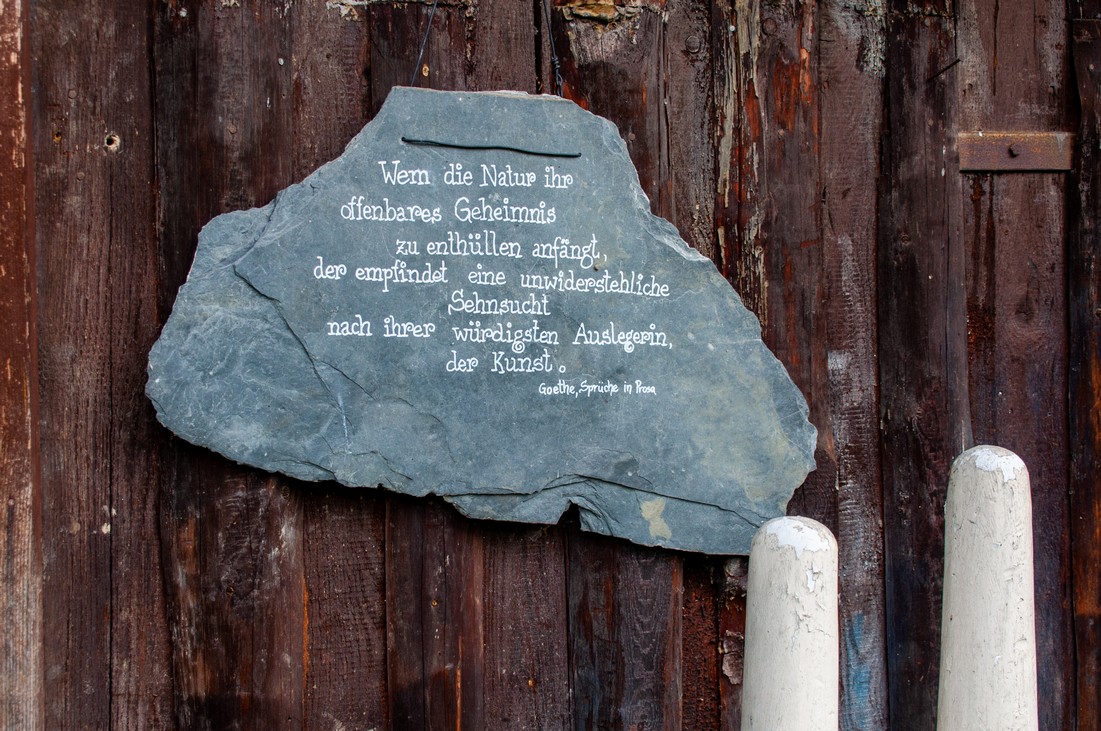 Wem die Natur ihr
offenbares Geheimnis
zu enthüllen anfängt,
der empfindet eine unwiderstehliche
Sehnsucht
nach ihrer würdigsten Auslegerin,
der Kunst.
Goethe, Sprüche in Prosa